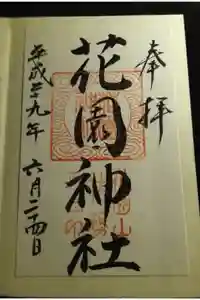 奉拝
花園神社
平成二十九年
六月二十四日